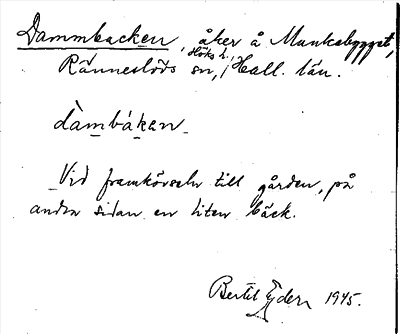 Dammbacken, åker å Munkabygget,
Ränneslövs sn, Höks h., Hall. län.
dàmbákan
Vid framkörseln till gården, på
andra sidan en liten bäck.
Bertil Ejder 1945.